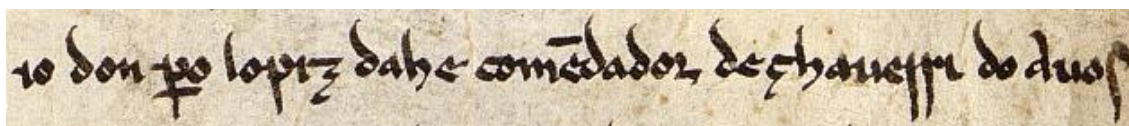 io don p̲o lopiz dahe comēdador de çhaueſſri do a vos